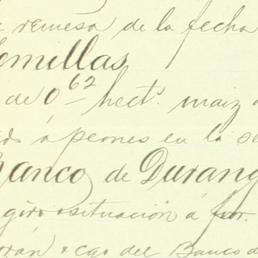 remesa de la fecha
Semillas
de 0 62 hect. maiz
á peones en la se
Banco de Durang
giro situación á fvr.
cgo del Banco d